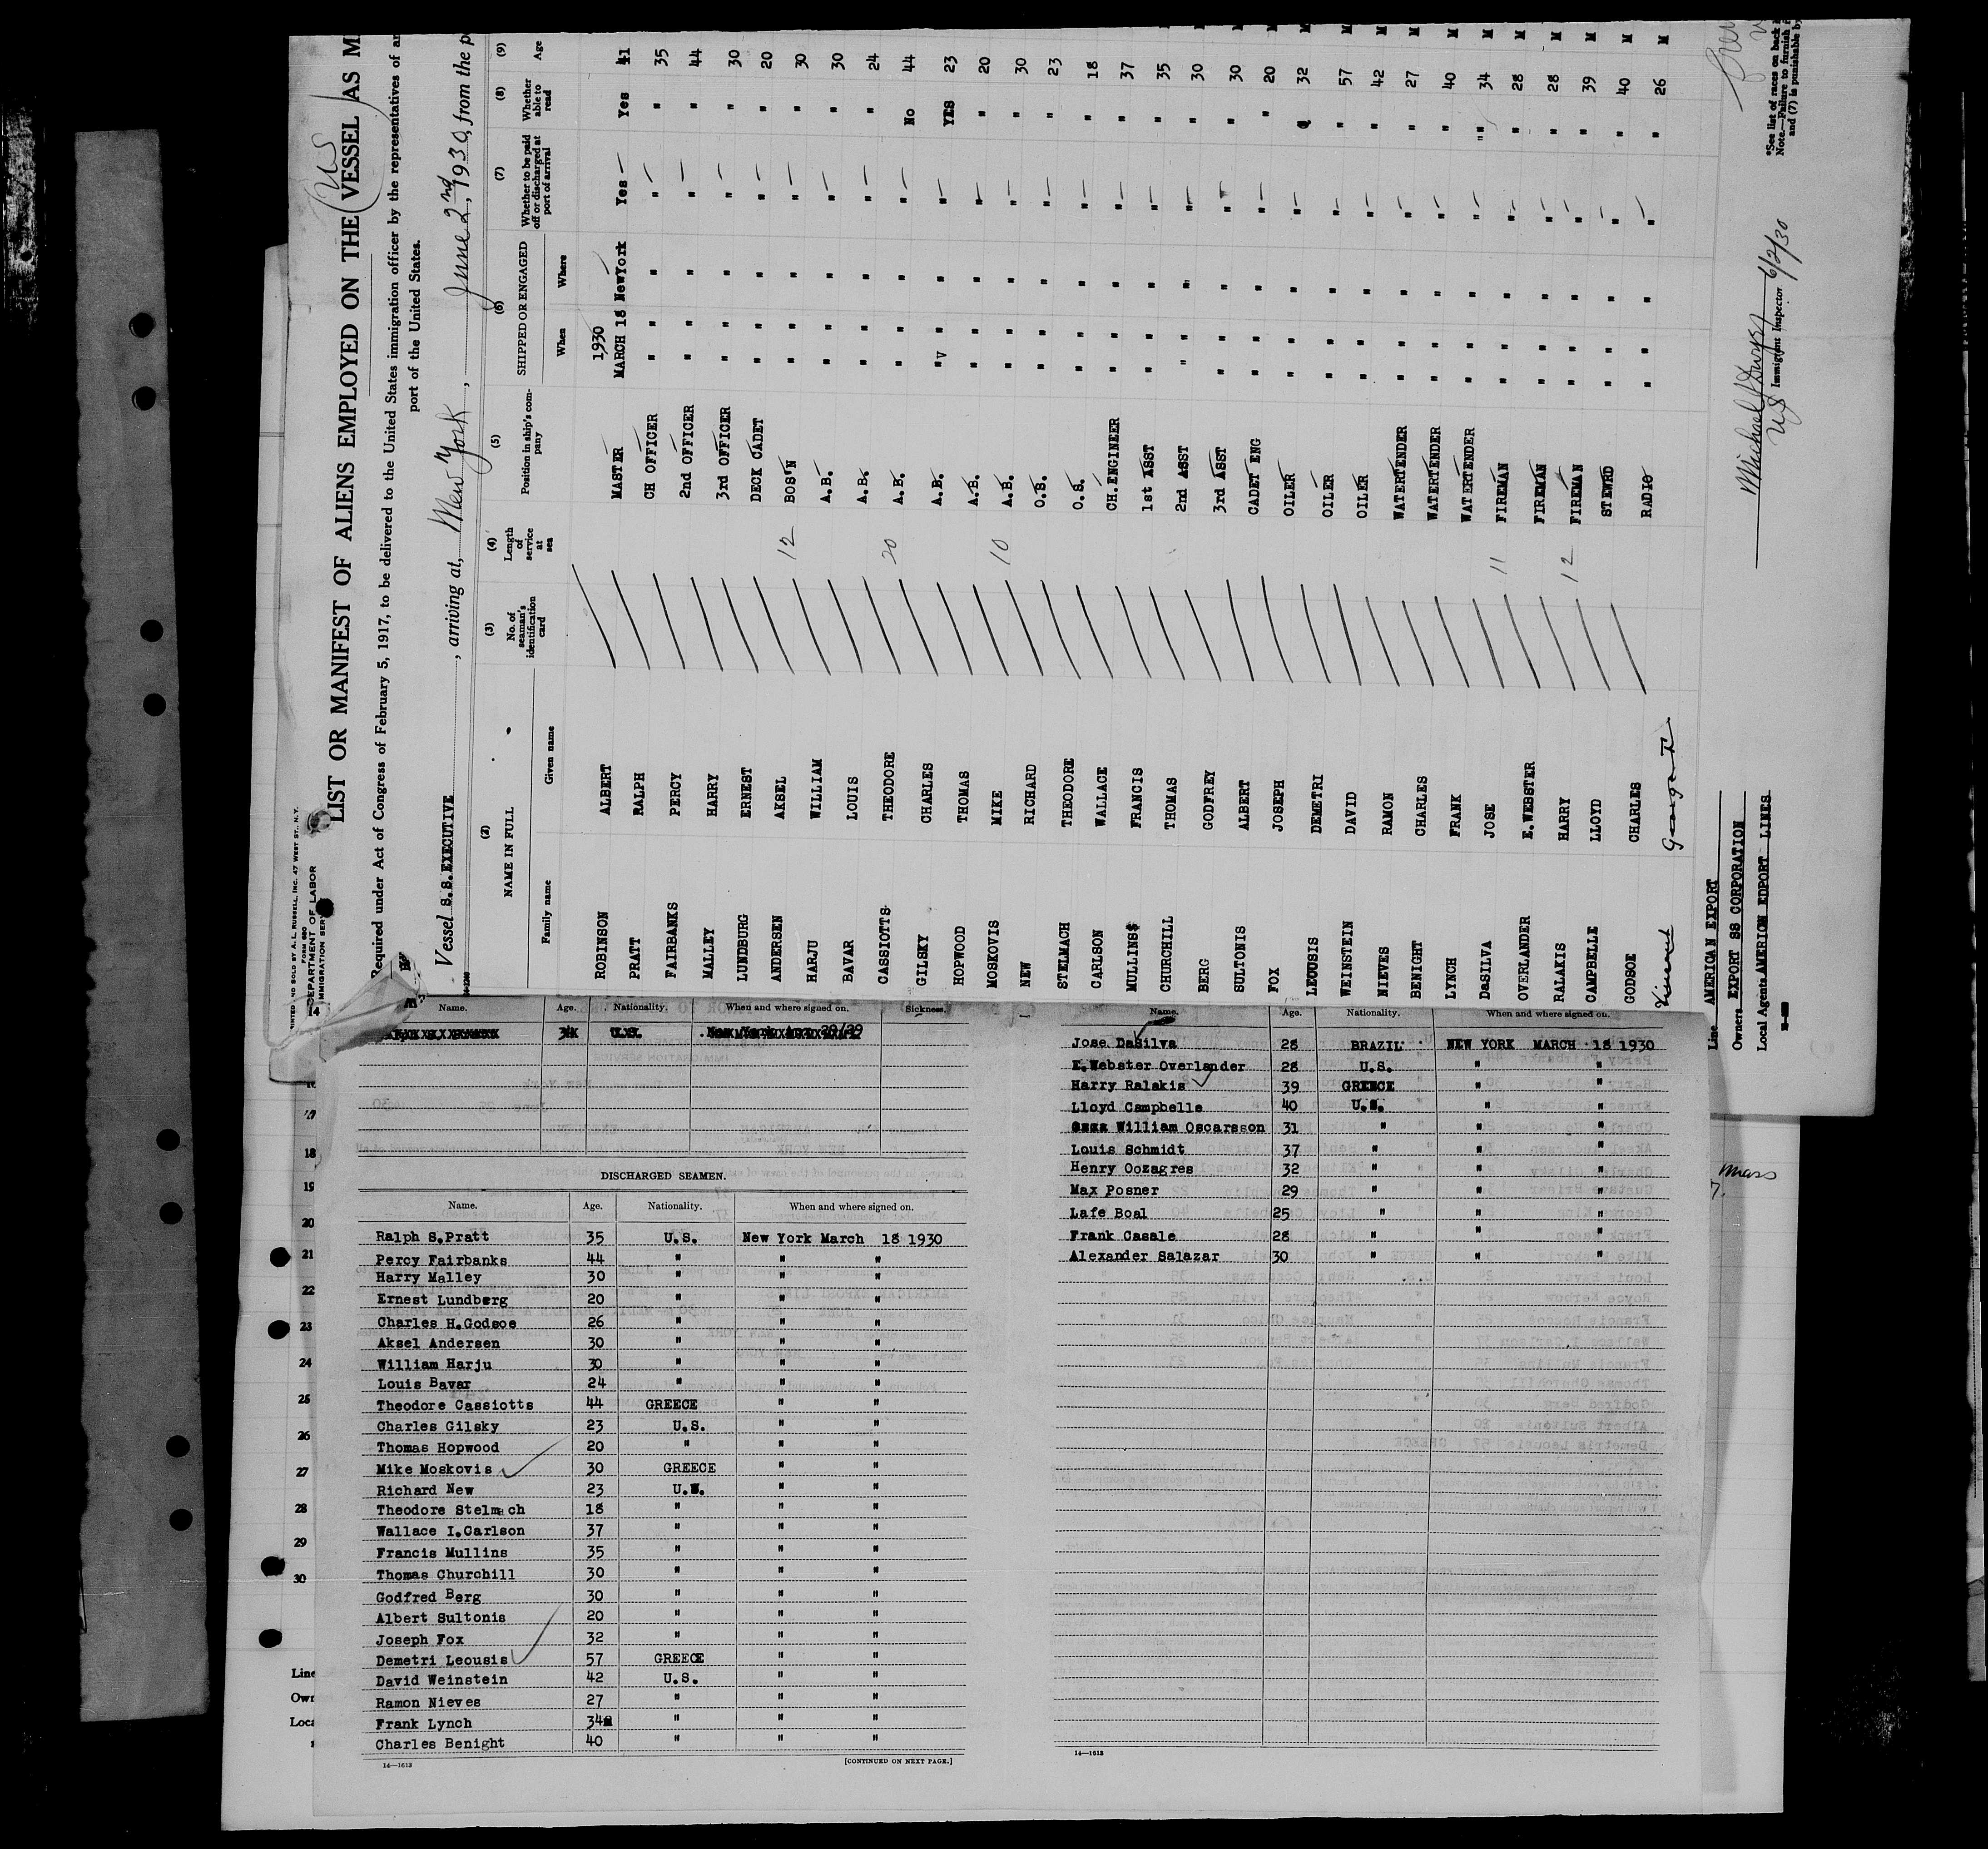 PRINTED AND SOLD BY A. L. RUSSELL, INC. 47 WEST ST., N.Y.
FORM 680
DEPARTMENT OF LABOR
IMMIGRATION SERV
LIST OR MANIFEST OF ALIENS EMPLOYED ON THE VESSEL AS M
US
Required under Act of Congress of February 5, 1917, to be delivered to the United States immigration officer by the representatives of an
port of the United States.
Vessel S.S.EXECUTIVE, arriving at, New York, June 2nd, 1930, from the p
(2) (3) (4) (5) (6) (7) (8) (9)
NAME IN FULL No. of seaman's identification card Length of service at sea Position in ship's company SHIPPED OR ENGAGED Whether to be paid off or discharged at port of arrival Whether able to read Age
Family name Given name When Where
1930
ROBINSON ALBERT MASTER MARCH 18 NewYork Yes Yes 41
PRATT RALPH CH OFFICER " " " " " 35 M
FAIRBANKS PERCY 2nd OFFICER " " " " " 44 M
MALLEY HARRY 3rd OFFICER " " " " " 30 M
LUNDBURG ERNEST DECK CADET " " " " " 20 M
ANDERSEN AKSEL 12 BOS'N " " " " " 30 M
HARJU WILLIAM A.B. " " " " " 30 M
BAVAR LOUIS A.B. " " " " " 24 M
CASSIOTTS THEODORE 20 A.B. " " " " No 44 M
GILSKY CHARLES A.B. " " " " YES 23 M
HOPWOOD THOMAS A.B. " " " " " 20 M
MOSKOVIS MIKE 10 A.B. " " " " " 30 M
NEW RICHARD O.S. " " " " " 23 M
STELMACH THEODORE O.S. " " " " " 18 M
CARLSON WALLACE CH.ENGINEER " " " " " 37 M
MULLINS$ FRANCIS 1st ASST " " " " " 35 M
CHURCHILL THOMAS 2nd ASST " " " " " 30 M
BERG GODFREY 3rd ASST " " " " " 30 M
SULTONIS ALBERT CADET ENG " " " " " 20 M
FOX JOSEPH OILER " " " " " 32 M
LEOUSIS DEMETRI OILER " " " " " 57 M
WEINSTEIN DAVID OILER " " " " " 42 M
NIEVES RAMON WATERTENDER " " " " " 27 M
BENIGHT CHARLES WATERTENDER " " " " " 40 M
LYNCH FRANK WATERTENDER " " " " " 34 M
DaSILVA JOSE 11 FIREMAN " " " " " 28 M
OVERLANDER E.WEBSTER FIREMAN " " " " " 28 M
RALAKIS HARRY 12 FIREMAN " " " " " 39 M
CAMPBELLE LLOYD STEWRD " " " " " 40 M
GODSOE CHARLES RADIO " " " " " 26 M
Line AMERICAN EXPORT
Owners EXPORT SS CORPORATION
Local Agents AMERICN EDPORT LINES
US Immigrant Inspector 6/2/30
*See list of races on back
Note.—Failure to furnish
and (7) is punishable by
Name. Age. Nationality. When and where signed on. Sickness.
U.S.
DISCHARGED SEAMEN.
Name. Age. Nationality. When and where signed on.
Ralph S.Pratt 35 U.S. New York March 18 1930
Percy Fairbanks 44 " " "
Harry Malley 30 " " "
Ernest Lundberg 20 " " "
Charles H.Godsoe 26 " " "
Aksel Andersen 30 " " "
William Harju 30 " " "
Louis Bavar 24 " " "
Theodore Cassiotts 44 GREECE " "
Charles Gilsky 23 U.S. " "
Thomas Hopwood 20 " " "
Mike Moskovis 30 GREECE " "
Richard New 23 U.S. " "
Theodore Stelmach 18 " " "
Wallace I.Carlson 37 " " "
Francis Mullins 35 " " "
Thomas Churchill 30 " " "
Godfred Berg 30 " " "
Albert Sultonis 20 " " "
Joseph Fox 32 " " "
Demetri Leousis 57 GREECE " "
David Weinstein 42 U.S. " "
Ramon Nieves 27 " " "
Frank Lynch 34 " " "
Charles Benight 40 " " "
14—1613 [CONTINUED ON NEXT PAGE.]
Name. Age. Nationality. When and where signed on.
Jose DaSilva 28 BRAZIL NEW YORK MARCH 18 1930
E.Webster Overlander 28 U.S. " "
Harry Ralakis 39 GREECE " "
Lloyd Campbelle 40 U.S. " "
William Oscarsson 31 " " "
Louis Schmidt 37 " " "
Henry Oozagres 32 " " "
Max Posner 29 " " "
Lafe Boal 25 " " "
Frank Casale 28 " " "
Alexander Salazar 30 " " "
14—1613
14
18
19
20
21
22
23
24
25
26
27
28
29
30
Line
Own
Loca
Mass
7.